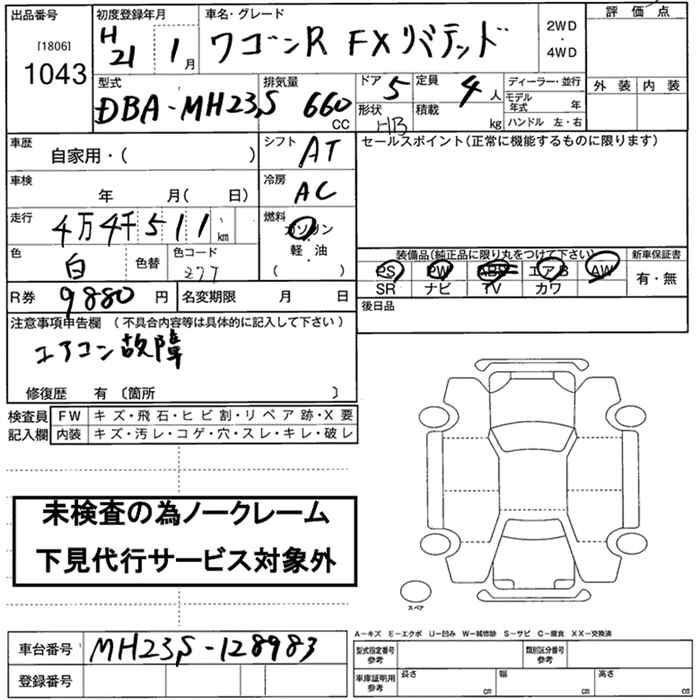 出品番号 初度登録年月 車名・グレード 評価点
[1806] H21 1月 ワゴンR FXリミテッド 2WD・4WD
1043
型式 排気量 ドア 5 定員 4人 ディーラー・並行 外装 内装
DBA-MH23S 660CC 形状 HB 積載 kg モデル年式 年
ハンドル 左・右
車歴 自家用・( ) シフト AT セールスポイント(正常に機能するものに限ります)
車検 年 月( 日) 冷房 AC
走行 4万4千511km 燃料 ガソリン
軽・油
( )
色 白 色替 色コード 装備品(純正品に限り丸をつけて下さい) 新車保証書
PS PW ABS エアB AW 有・無
SR ナビ TV カワ
R券 9880円 名変期限 月 日 後日品
注意事項申告欄 (不具合内容等は具体的に記入して下さい)
エアコン故障
修復歴 有 〔箇所 〕
検査員 FW キズ・飛石・ヒビ割・リペア跡・X要
記入欄 内装 キズ・汚レ・コゲ・穴・スレ・キレ・破レ
未検査の為ノークレーム
下見代行サービス対象外
スペア
A-キズ E-エクボ U-凹み W-補修跡 S-サビ C-腐食 XX-交換済
車台番号 MH23S-128983 型式指定番号 参考 類別区分番号 参考
登録番号 車庫証明用 参考 長さ cm 幅 cm 高さ cm